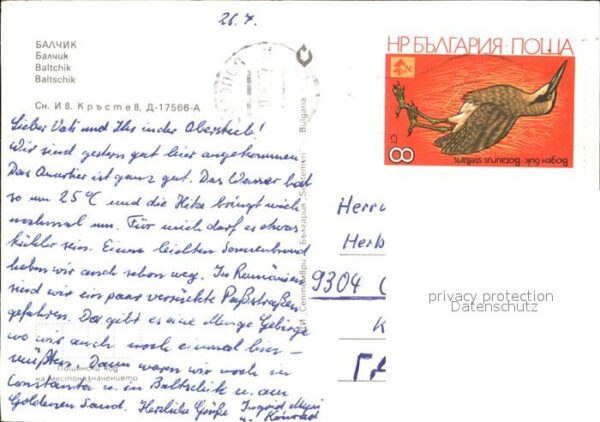 26.7.
БАЛЧИК
Балчик
Baltchik
Baltschik
Сн. Ив. Кръстев, Д-17566-А
Lieber Vati und Ihr in der Oberstub!
Wir sind gestern gut hier angekommen
Das Quartier ist ganz gut. Das Wasser hat
so um 25°C und die Hitze bringt mich
nochmal um. Für mich darf es etwas
kühler sein. Einen leichten Sonnenbrand
haben wir auch schon weg. In Rumänien
sind wir ein paar verrückte Paßstraßen
gefahren. Da gibt es eine Menge Gebirge
wo wir auch noch einmal hin-
müßten. Dann waren wir noch in
Constanta u. in Baltschik u. am
Goldenen Sand. Herzliche Grüße Ingrid
u. Konrad
Пощенски код
на местоназначението
ДИ Септември България Septemvri Bulgaria
НР БЪЛГАРИЯ·ПОЩА
Воден бик Botaurus stellaris
8
СТ
Herrn
Herb
9304
K
privacy protection
Datenschutz